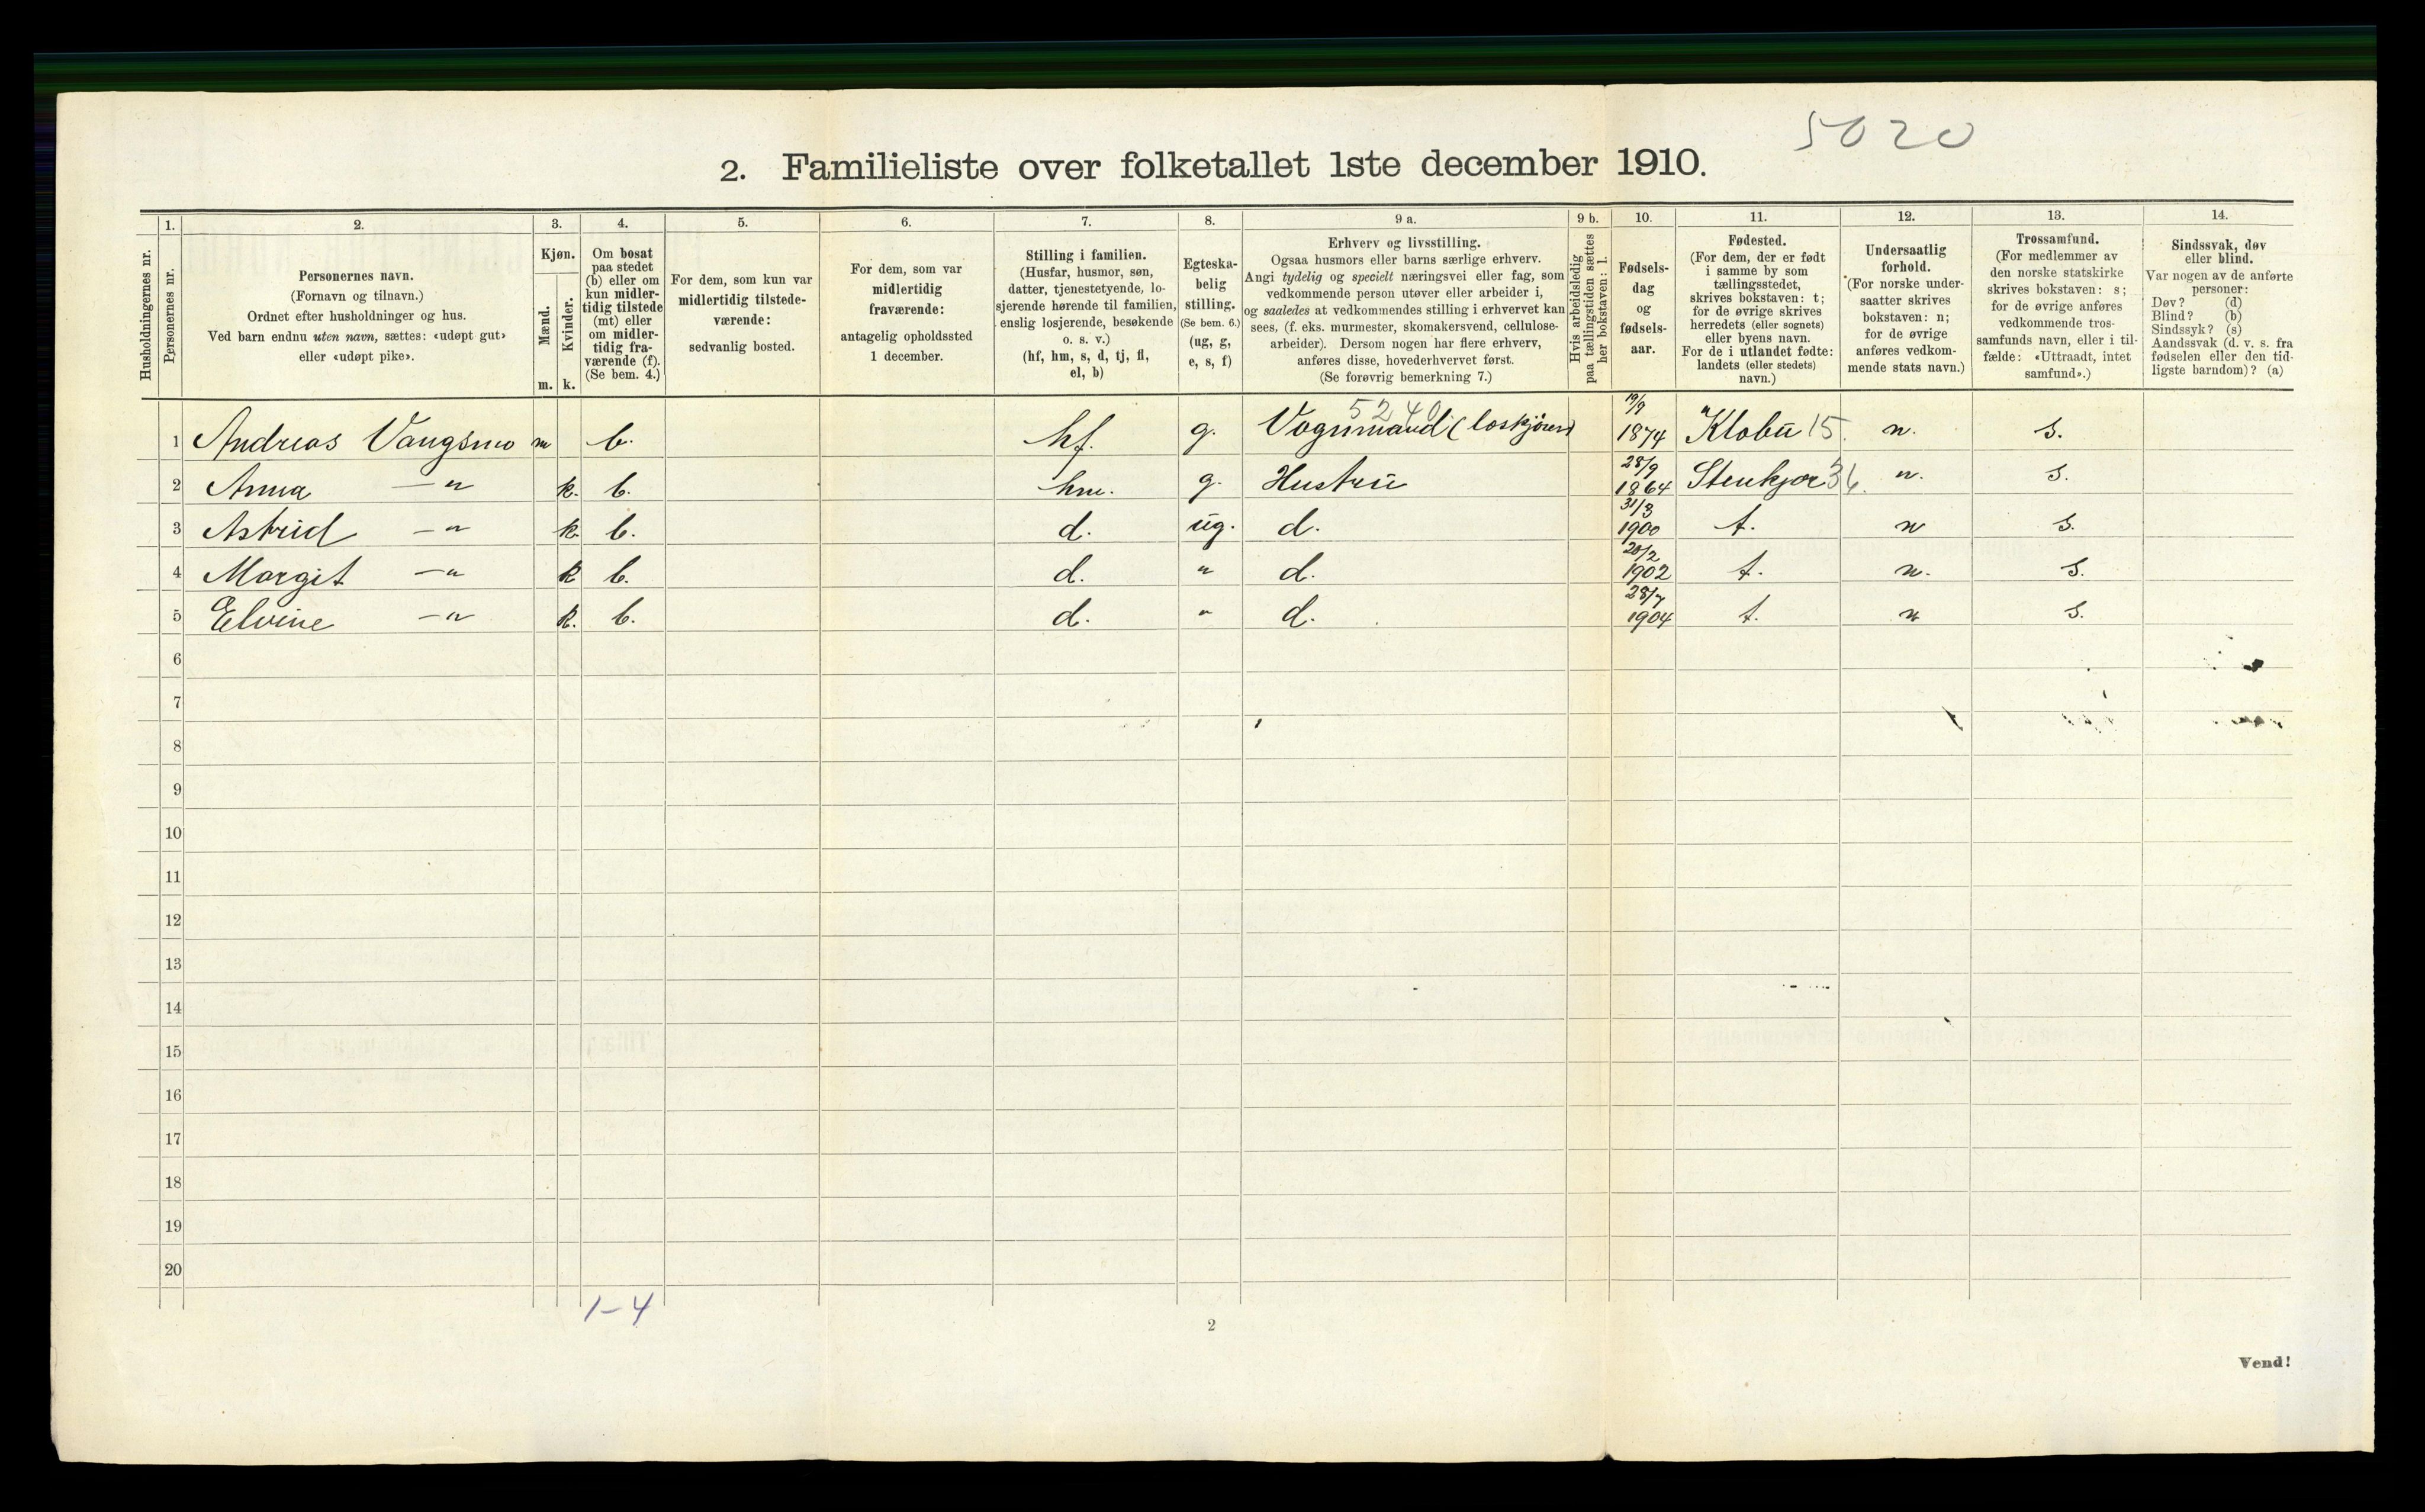 5020
2. Familieliste over folketallet 1ste december 1910.
1. 2. 3. 4. 5. 6. 7. 8. 9 a. 9 b. 10. 11. 12. 13. 14.
Husholdningernes nr.
Personernes nr.
Personernes navn.
(Fornavn og tilnavn.)
Ordnet efter husholdninger og hus.
Ved barn endnu uten navn, sættes: «udøpt gut»
eller «udøpt pike».
Kjøn.
Mænd.
Kvinder.
m. k.
Om bosat
paa stedet
(b) eller om
kun midler-
tidig tilstede
(mt) eller
om midler-
tidig fra-
værende (f).
(Se bem. 4.)
For dem, som kun var
midlertidig tilstede-
værende:
sedvanlig bosted.
For dem, som var
midlertidig
fraværende:
antagelig opholdssted
1 december.
Stilling i familien.
(Husfar, husmor, søn,
datter, tjenestetyende, lo-
sjerende hørende til familien,
enslig losjerende, besøkende
o. s. v.)
(hf, hm, s, d, tj, fl,
el, b)
Egteska-
belig
stilling.
(Se bem. 6.)
(ug, g,
e, s, f)
Erhverv og livsstilling.
Ogsaa husmors eller barns særlige erhverv.
Angi tydelig og specielt næringsvei eller fag, som
vedkommende person utøver eller arbeider i,
og saaledes at vedkommendes stilling i erhvervet kan
sees, (f. eks. murmester, skomakersvend, cellulose-
arbeider). Dersom nogen har flere erhverv,
anføres disse, hovederhvervet først.
(Se forøvrig bemerkning 7.)
Hvis arbeidsledig
paa tællingstiden sættes
her bokstaven: l.
Fødsels-
dag
og
fødsels-
aar.
Fødested.
(For dem, der er født
i samme by som
tællingsstedet,
skrives bokstaven: t;
for de øvrige skrives
herredets (eller sognets)
eller byens navn.
For de i utlandet fødte:
landets (eller stedets)
navn.)
Undersaatlig
forhold.
(For norske under-
saatter skrives
bokstaven: n;
for de øvrige
anføres vedkom-
mende stats navn.)
Trossamfund.
(For medlemmer av
den norske statskirke
skrives bokstaven: s;
for de øvrige anføres
vedkommende tros-
samfunds navn, eller i til-
fælde: «Uttraadt, intet
samfund».)
Sindssvak, døv
eller blind.
Var nogen av de anførte
personer:
Døv? (d)
Blind? (b)
Sindssyk? (s)
Aandssvak (d. v. s. fra
fødselen eller den tid-
ligste barndom)? (a)
5240 19/9
1 Andreas Vangsmo m b. hf. g. Vognmand (loskjører) 1874 Klobu 15. n. s.
28/9
2 Anna —„ k. b. hm. g. Hustru 1864 Stenkjær 36. n. s.
31/3
3 Astrid —„ k. b. d. ug. d. 1900 t. n s.
20/2
4 Margit —„ k b. d. „ d. 1902 t. n. s.
28/7
5 Elvine —„ k. b. d. „ d. 1904 t. n s.
6
7
8
9
10
11
12
13
14
15
16
17
18
19
20
1-4
2
Vend!